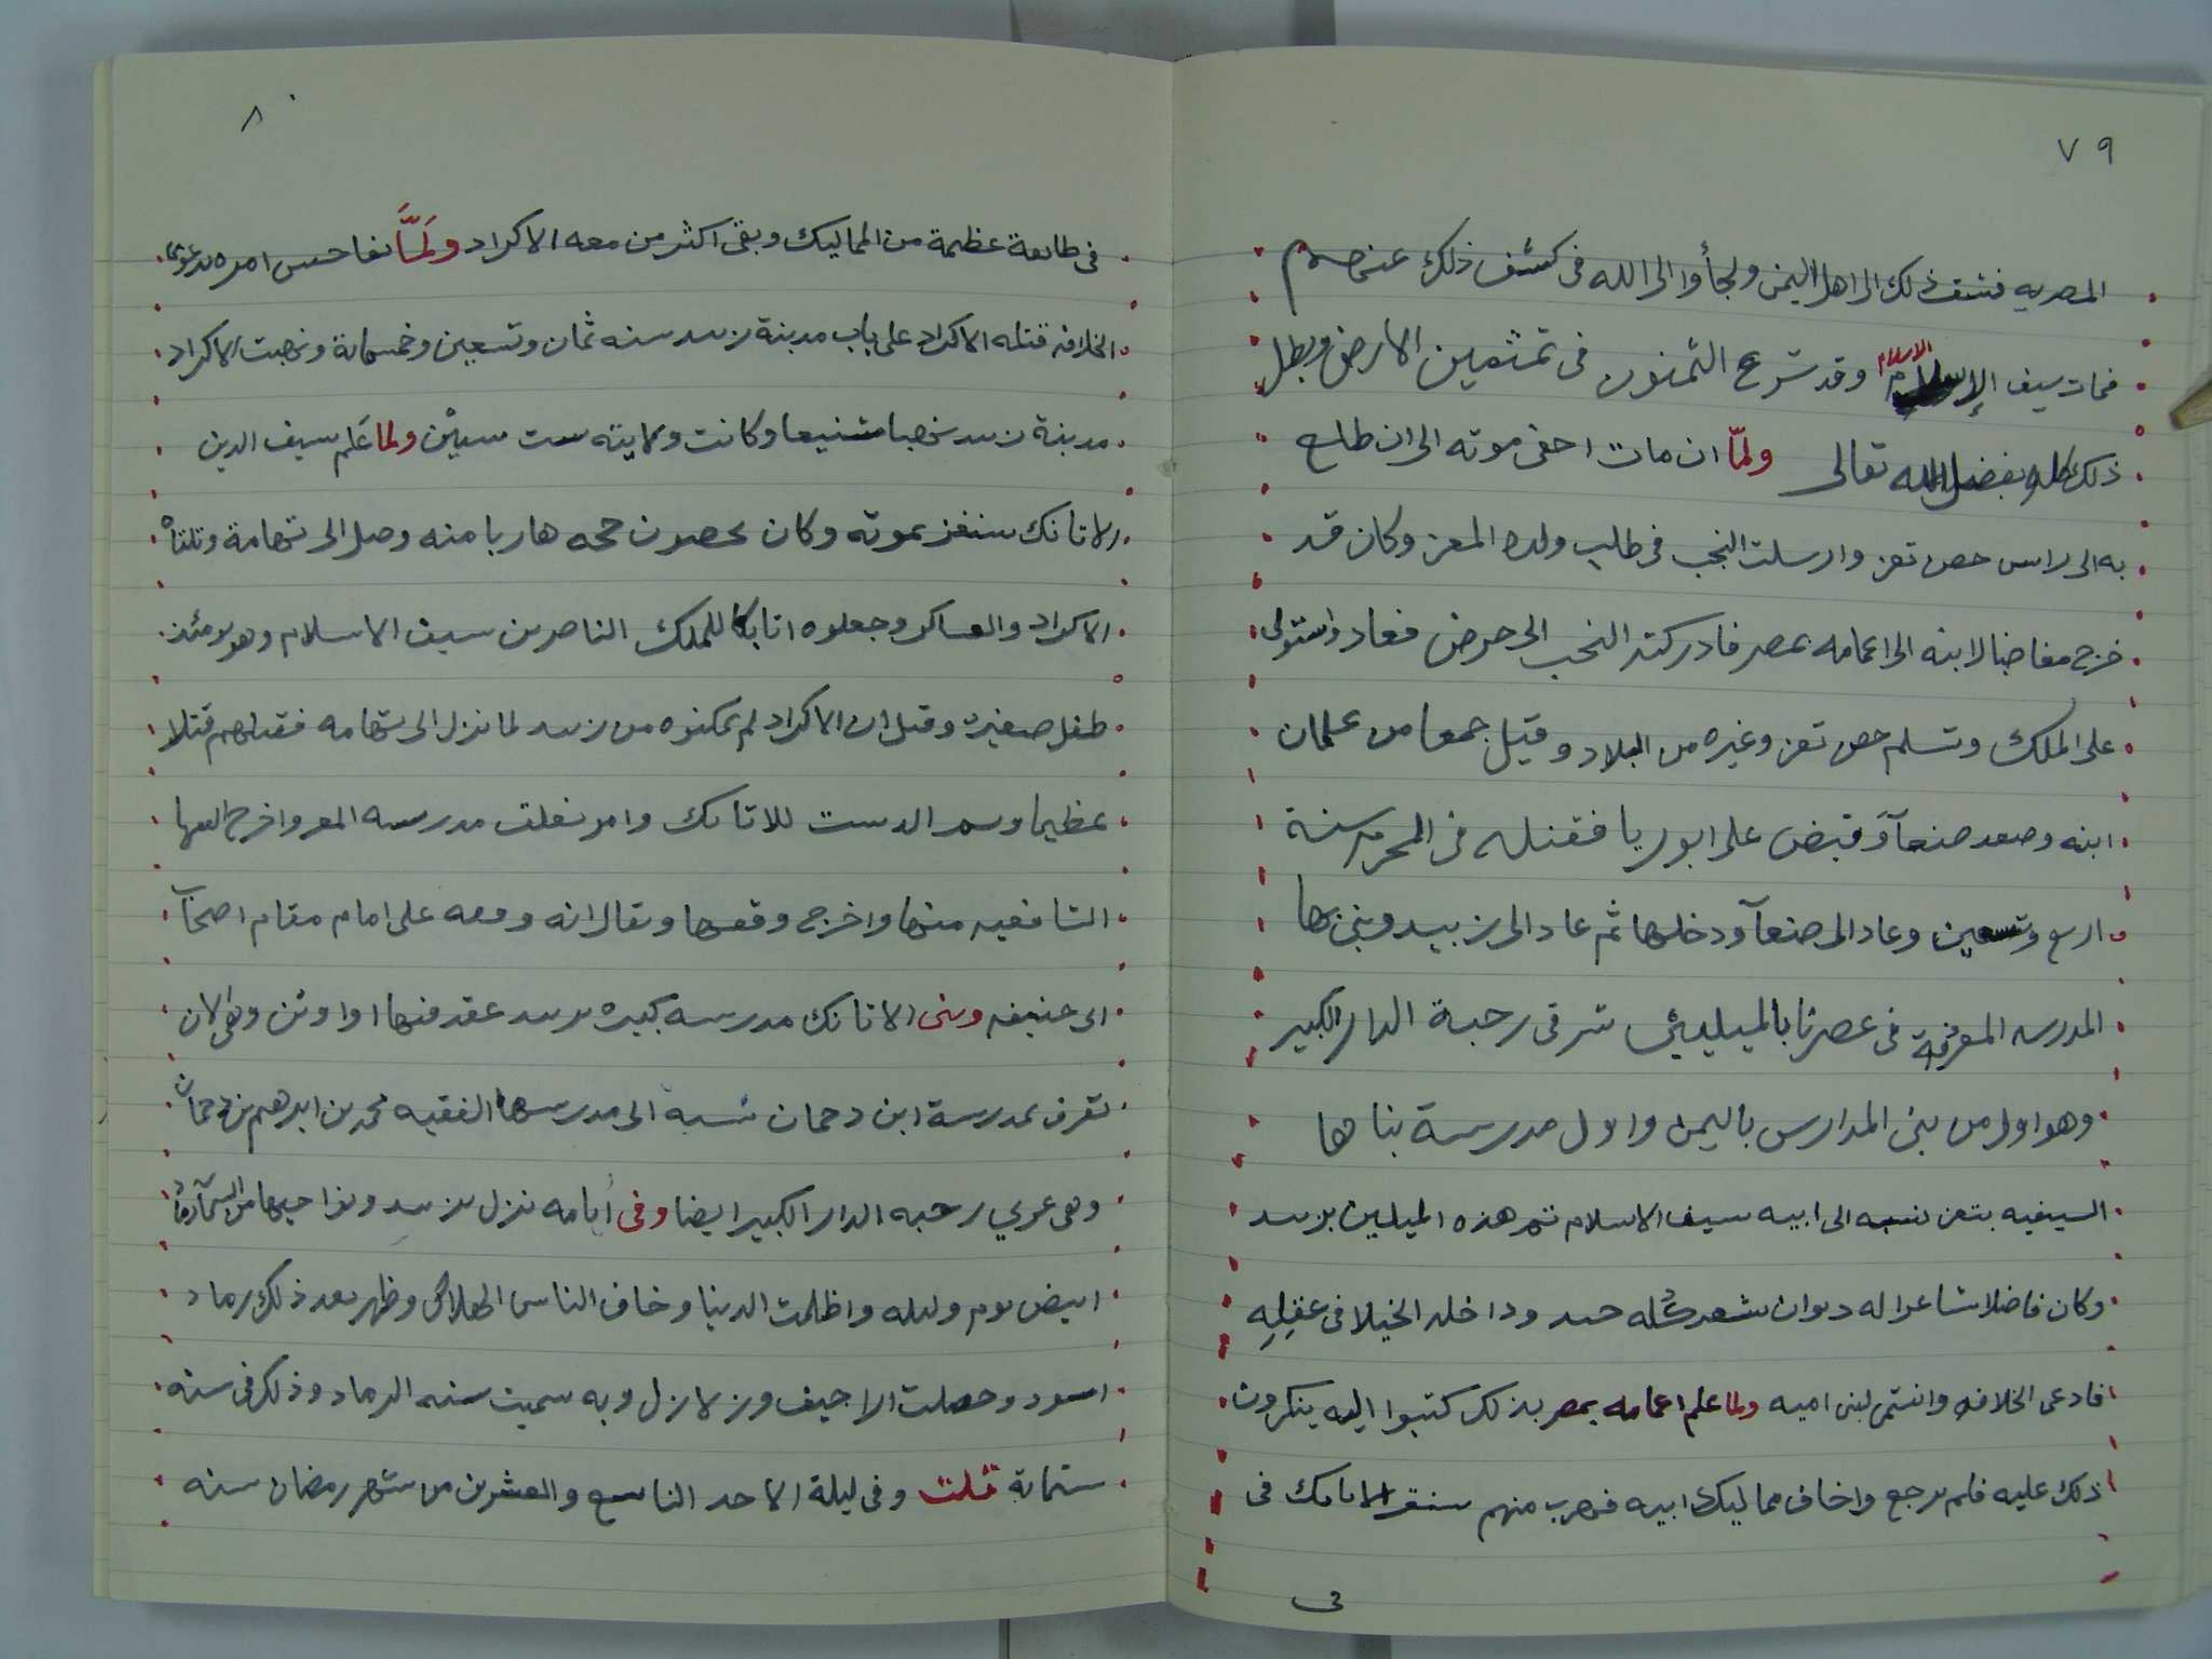 ٧٩
المصريه فشق ذلك الى اهل اليمن ولجأوا الى الله فى كشف ذلك عنهم
فمات سيف الإسلام الاسلام وقد شرع الثمنون فى تمثمين الارض وبطل
ذلك كله بفضل الله تعالى ولمّا ان مات احفى موته الى ان طلع
به الى راس حصن تعز وارسلت النجب فى طلب ولده المعز وكان قد
خرج مغاضبا لابنه الى اعمامه بمصر فادركته النجب الى حرض فعاد واستولى
على الملك وتسلم حصن تعز وغيره من البلاد وقتل جمعا من علمان
ابنه وصعد صنعآ وقبض على ابوريا فقتله فى المحرم سنة
اربع وتسعين وعاد الى صنعآ ودخلها ثم عاد الى زبيد وبنى بها
المدرسه المعرفة فى عصرنا بالميلين شرقى رحبة الدار الكبير
وهو اول من بنى المدارس باليمن واول مدرسة بناها
السيفيه بتعز نسبه الى ابيه سيف الاسلام ثم هذه الميلين بزبيد
وكان فاضلا شاعرا له ديوان شعر كله حيد وداخله الخيلا فى عقلِهِ
فادعى الخلافه وانتمى لبنى اميه ولما علم اعمامه بمصر بذلك كتبوا اليه ينكرون
ذلك عليه فلم يرجع واخاف مماليك ابيه فهرب منهم سنقر الاتابك فى
فى
٨٠
فى طايعة عظيمة من المماليك وبقى اكثر من معه الاكراد ولَمَّا تفاحس امره بدعوى
الخلافه قتله الاكراد على باب مدينة زبيد سنه ثمان وتسعين وخمسماىة ونهبت الاكراد
مدينة زبيد نهبا شنيعا وكانت ولايته ست سنين ولما عَلم سيف الدين
الاتابك سنقر بموته وكان بحصون حجه هاربا منه وصل الى تهامة وتلقاه
الاكراد والعساكر وجعلوه اتابكا للملك الناصر بن سيف الاسلام وهو يومئذ
طفل صغير وقيل ان الاكراد لم يمكنوه من زبيد لما نزل الى تهامه فقتلهم قتلا
عظيما وسم الدست للاتابك وامر بغلق مدرسه المعز واخرج الفقها
الشافعيه منها واخرج وقفها ويقال انه وقفه على امام مقام اصحآب
ابى حنيفه وبنى الاتابك مدرسه كبيره بزبيد عقد فيها اواوين وهى الان
تعرف بمدرسة ابن دحمان نسبة الى مدرسها الفقيه محمد بن ابرهيم بن دحمان
وهى غربي رحبه الدار الكبير ايضا وفى أيامه نزل بزبيد ونواحيها من السمآ رماد
ابيض يوم وليله واظلمت الدنيا وخاف الناس الهلاك وظهر بعد ذلك رماد
اسود وحصلت اراجيف وزلازل وبه سميت سنه الرماد وذلك فى سنه
ستمائة قلت وفى ليلة الاحد التاسع والعشرين من شهر رمضان سنه